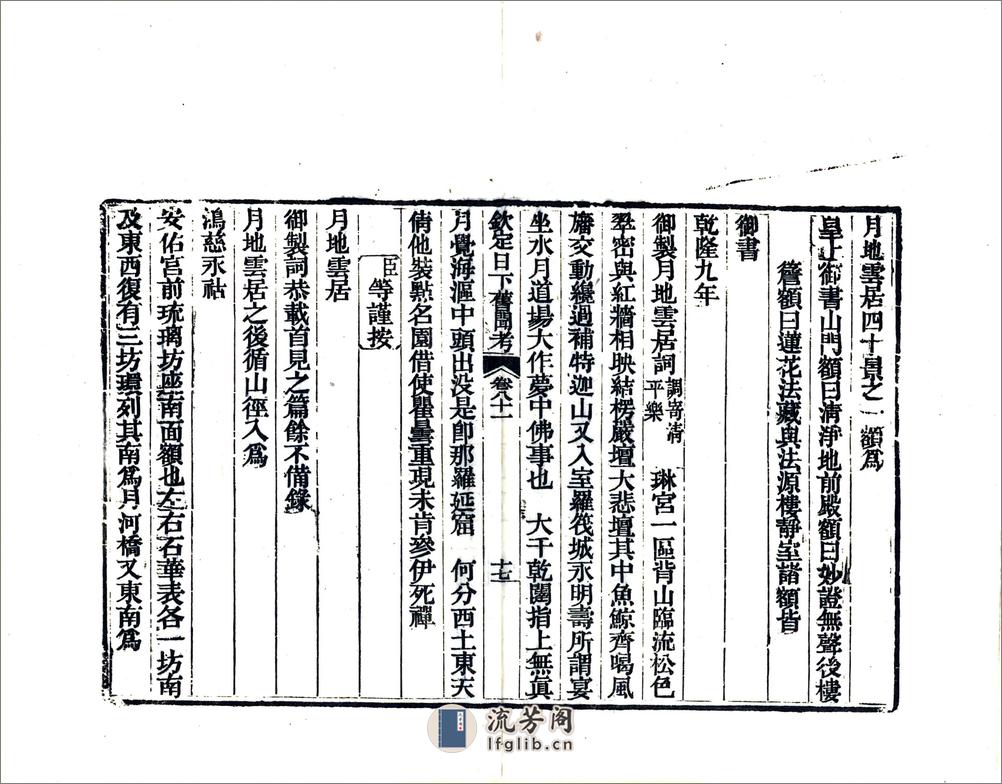 月地雲居四十景之一額爲
皇上御書山門額曰清淨地前嚴額曰妙證無聲後樓
簷額曰蓮花法藏與法源樓靜室諸額皆
御書
乾隆九年
御製月地雲居詞調寄清平樂 琳宮一區背山臨流松色
翠密與紅牆相映結楞嚴壇大悲壇其中魚鯨齊喝風
旛交動纔過補特迦山又入室羅筏城永明壽所謂宴
坐水月道場大作夢中佛事也 大千乾闥指上無眞
欽定日下舊聞考 卷八十一 十七
月覺海漚中頭出沒是卽那羅延窟 何分西土東天
倩他裝點名園借使瞿曇重現未肯參伊死禪
臣等謹按
月地雲居
御製詞恭載首見之篇餘不備錄
月地雲居之後循山徑入爲
鴻慈永祜
安佑宮前琉璃坊座南面額也左右石華表各一坊南
及東西復有三坊環列其南爲月河橋又東南爲
流芳阁
lfglib.cn